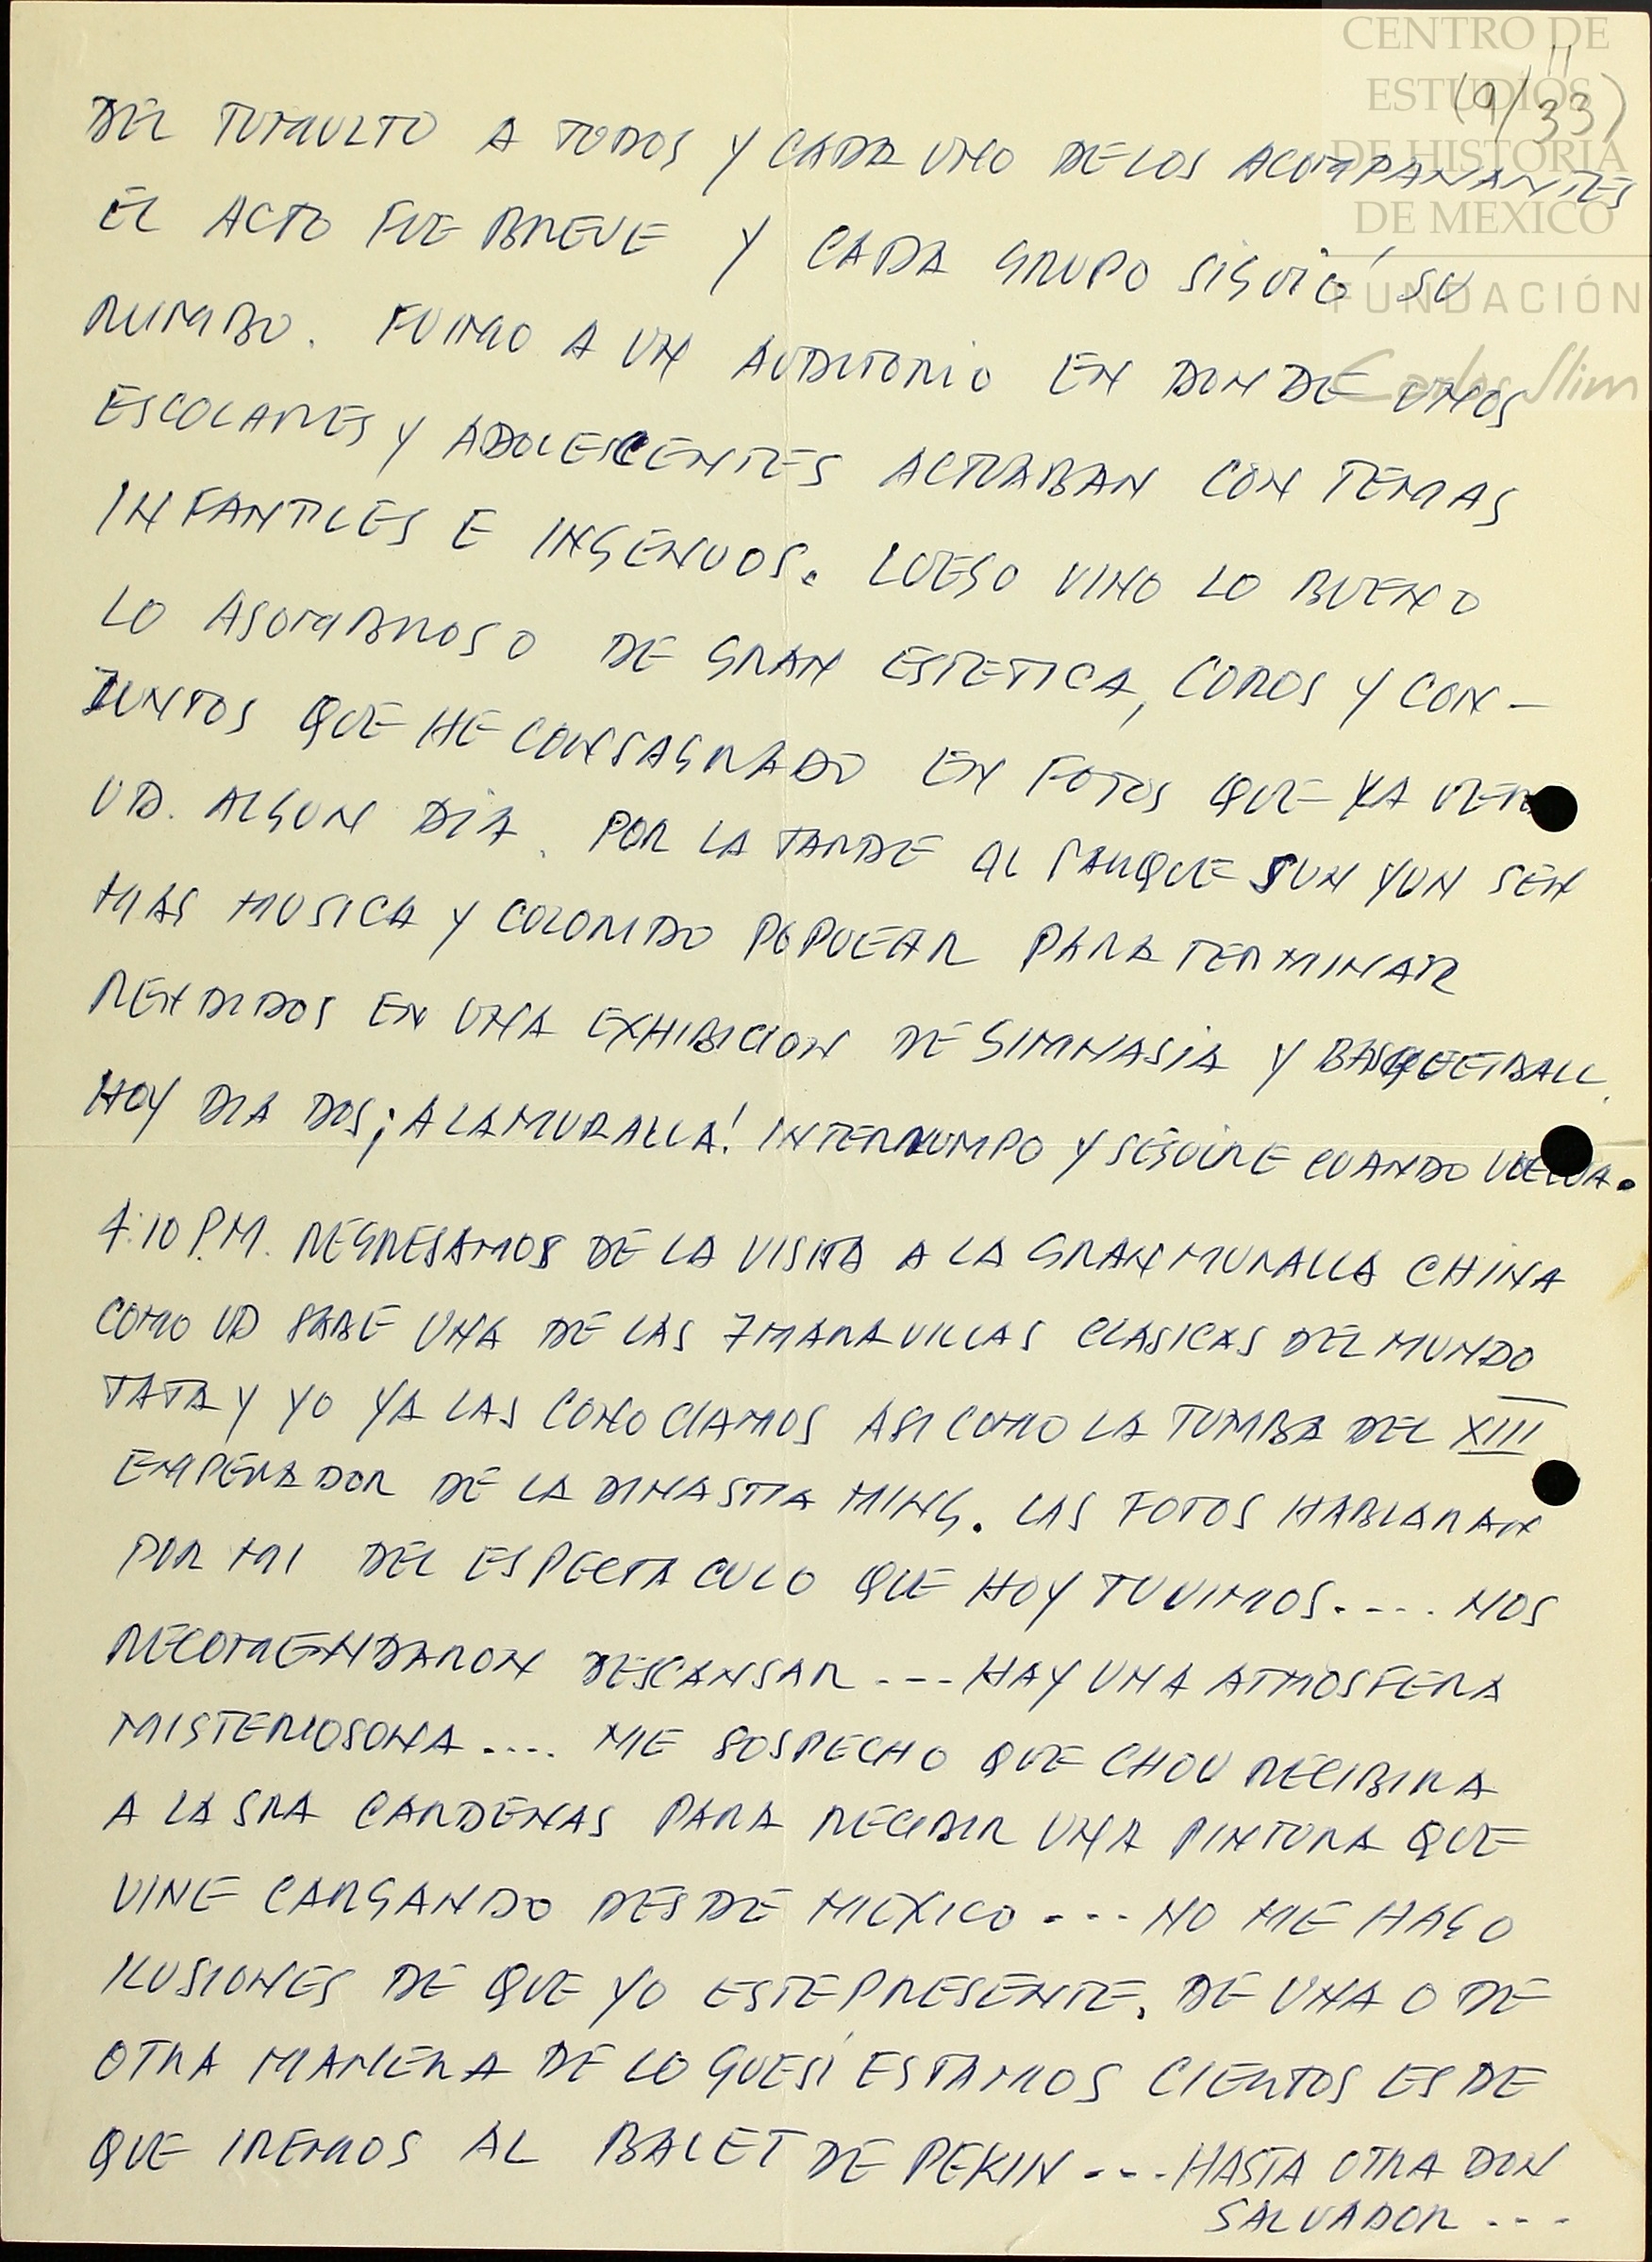 CENTRO DE
ESTUDIOS
DE HISTORIA
DE MEXICO
FUNDACIÓN
Carlos Slim
11
(9/33)
DEL TUMULTO A TODOS Y CADA UNO DE LOS ACOMPANANTES
EL ACTO FUE BREVE Y CADA GRUPO SIGUIÓ SU
RUMBO. FUIMO A UN AUDITORIO EN DONDE UNOS
ESCOLARES Y ADOLESCENTES ACTUABAN CON TEMAS
INFANTILES E INGENUOS. LUEGO VINO LO BUENO
LO ASOMBROSO DE GRAN ESTETICA, COROS Y CON-
JUNTOS QUE HE CONSAGRADO EN FOTOS QUE YA VERA
UD. ALGUN DIA. POR LA TARDE AL PARQUE SUN YUN SEN
MAS MUSICA Y COLORIDO POPULAR PARA TERMINAR
RENDIDOS EN UNA EXHIBICION DE GIMNASIA Y BASQUETBALL.
HOY DIA DOS ¡A LA MURALLA! INTERRUMPO Y SEGUIRE CUANDO VUELVA.
4:10 P.M. REGRESAMOS DE LA VISITA A LA GRAN MURALLA CHINA
COMO UD SABE UNA DE LAS 7 MARAVILLAS CLASICAS DEL MUNDO
TATA Y YO YA LAS CONOCIAMOS ASI COMO LA TUMBA DEL XIII
EMPERADOR DE LA DINASTIA MING. LAS FOTOS HABLARAN
POR MI DEL ESPECTACULO QUE HOY TUVIMOS.... NOS
RECOMENDARON DESCANSAR --- HAY UNA ATMOSFERA
MISTERIOSONA .... ME SOSPECHO QUE CHOU RECIBIRA
A LA SRA CARDENAS PARA RECIBIR UNA PINTURA QUE
VINE CARGANDO DESDE MEXICO --- NO ME HAGO
ILUSIONES DE QUE YO ESTE PRESENTE. DE UNA O DE
OTRA MANERA DE LO QUE SÍ ESTAMOS CIERTOS ES DE
QUE IREMOS AL BALET DE PEKIN --- HASTA OTRA DON
SALVADOR ---